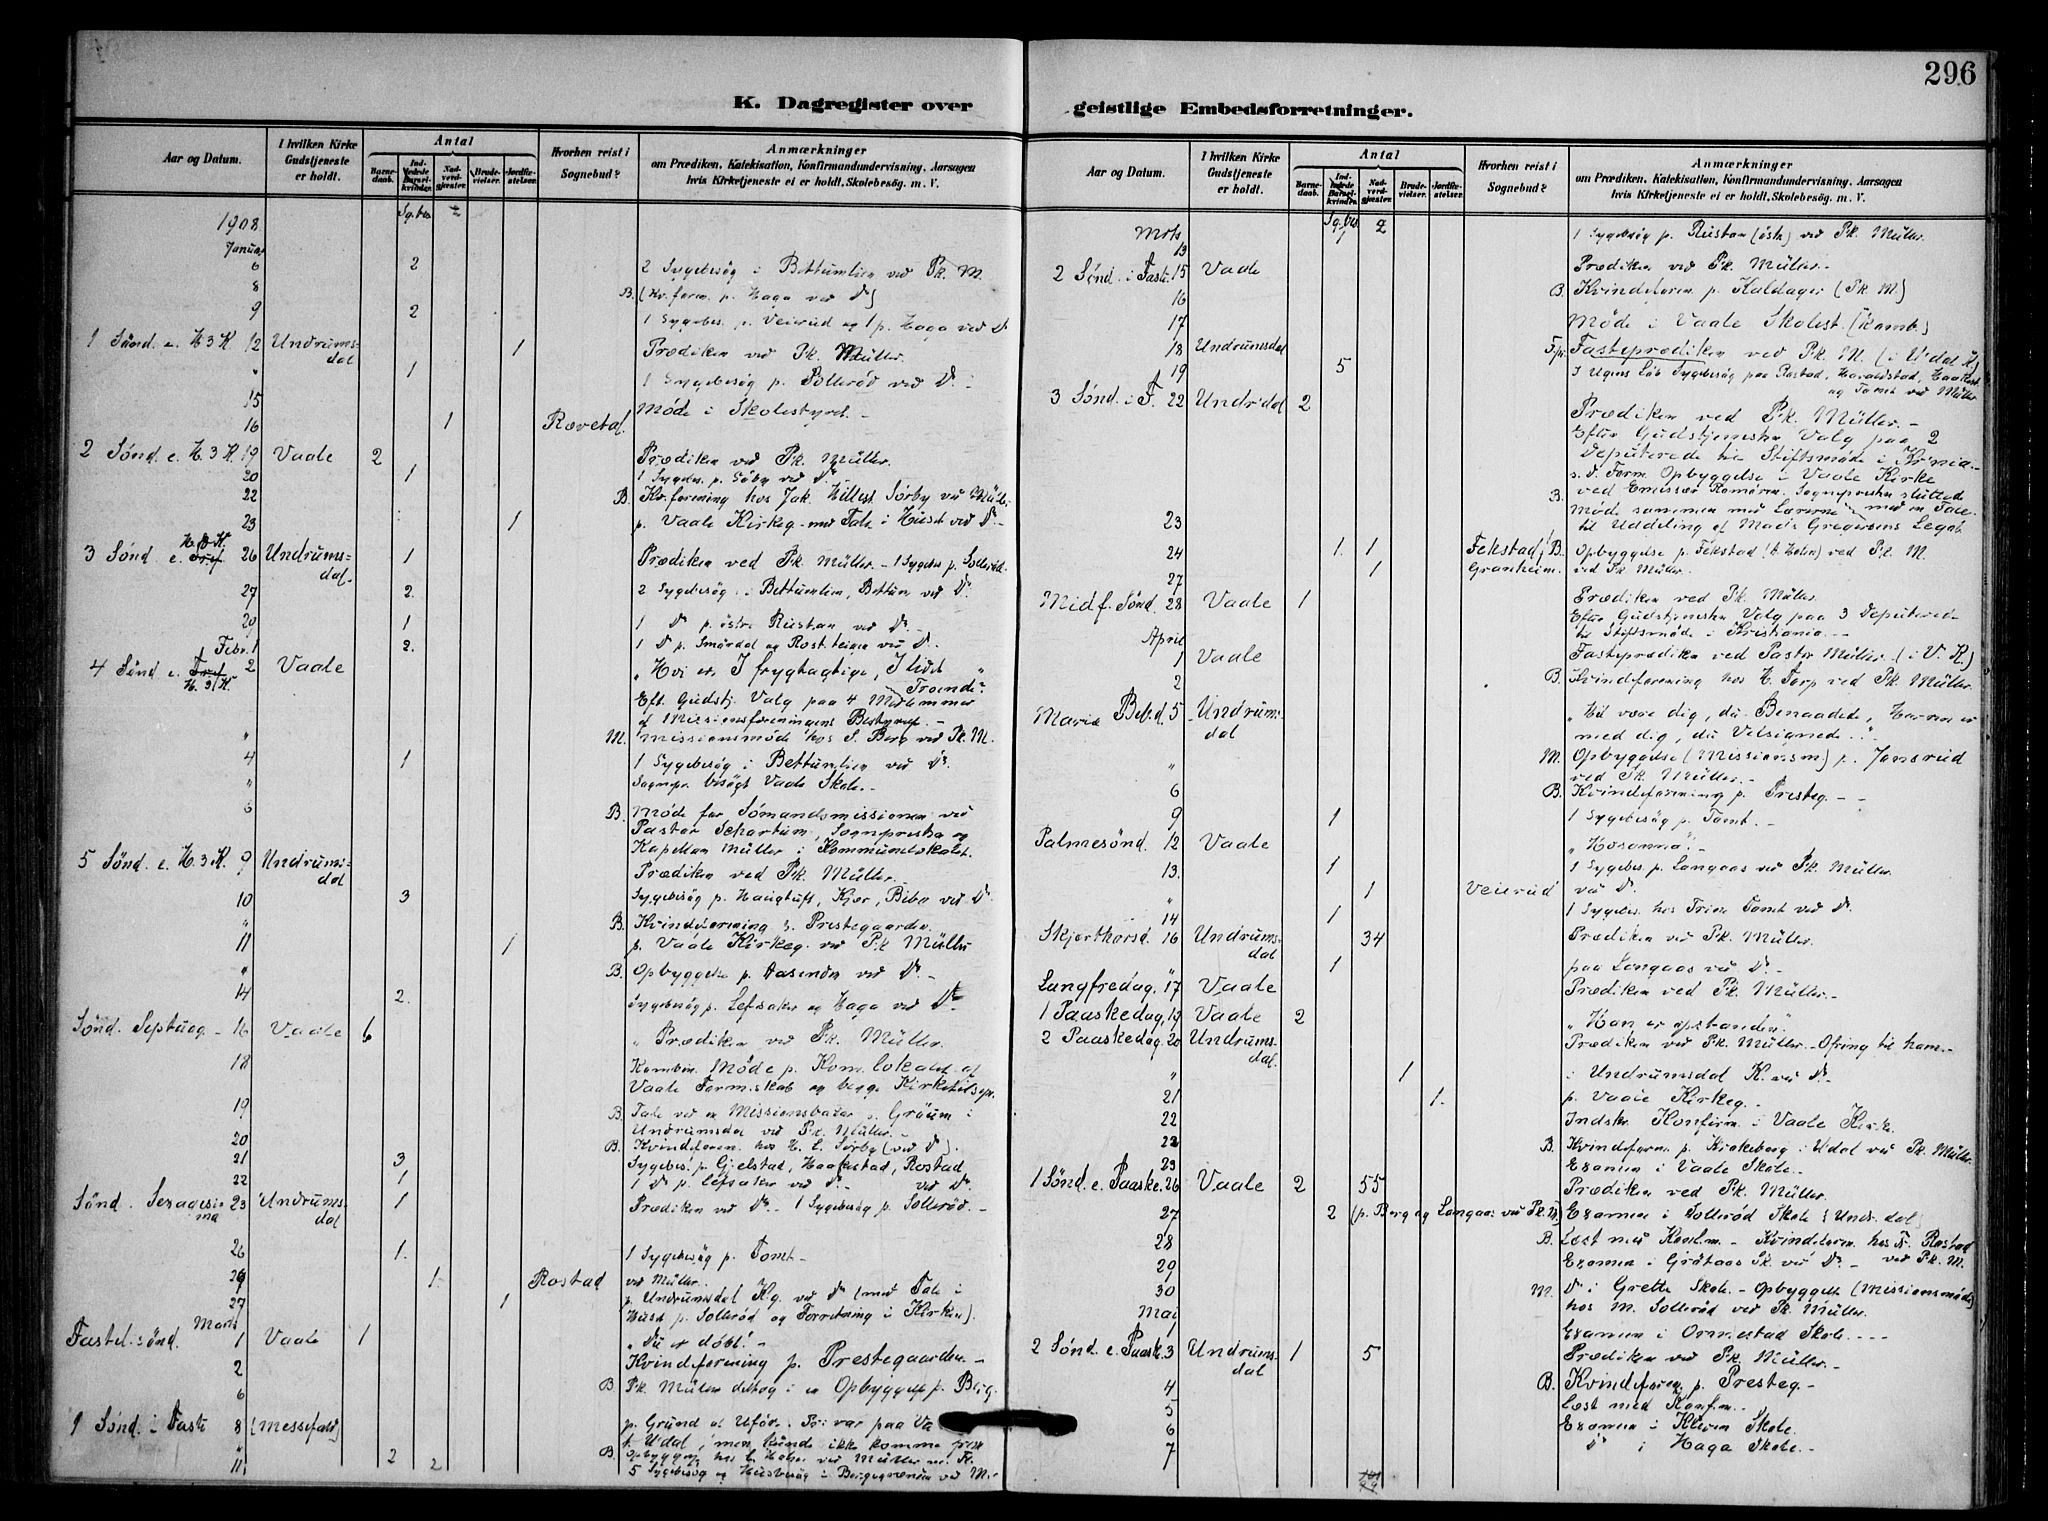 296
K. Dagregister over
geistlige Embedsforretninger.
Aar og Datum.
I hvilken Kirke Gudstjeneste er holdt.
Antal
Barnedaab.
Indledede Barselkvinder.
Nadverdgjester.
Brudevielser.
Jordfæstelser.
Hvorhen reist i Sognebud?
Anmærkninger
om Prædiken, Katekisation, Konfirmandundervisning, Aarsagen
hvis Kirketjeneste ei er holdt, Skolebesøg. m. V.
1908 Sg.bes.
Januar
6 2 2 Sygebesøg i Bettumlien ved Pk. M
8 B. (Kv.foren. p. Haga ved Do)
9 2 1 Sygebes. p. Veierud og 1 p. Haga ved Do
1 Sønd. e. H3K 12 Undrumsdal 1 Prædiken ved Pk. Müller.
" 1 1 Sygebesøg p. Sollerød ved Do -
15 Møde i Skolestyret. -
16 1 Rævetal.
2 Sønd. e. H.3K. 19 Vaale 2 Prædiken ved Pk. Müller.
20 1 1 Sygebes. p. Søby ved Do -
22 B. Kv.forening hos Jak. Sørby ved
23 1 p. Vaale Kirkeg. med Tale i Huset ved Do -
3 Sønd. e. H.3K. 26 Undrumsdal. 1 Prædiken ved Pk. Müller. - 1 Sygebes p. Sollerød.
27 2. 2 Sygebesøg i Bettumlien, Bettum ved Do.
1 1 Do p. østre Rustan ved Do -
Febr. 1 2. 1 Do p. Smørdal og Rost. ved Do.
4 Sønd. e. H.3K. 2 Vaale "Hvi er I frygtagtige, I lidet Troende"
Eft. Gudstj. Valg paa 4 Medlemmer
af Missionsforeningens Bestyrelse. -
" M. Missionsmøde hos S. Berg ved Pk. M.
4 1 1 Sygebesøg i Bettumlien ved Do.
" Sognepr. besøgt Vaale Skole. -
6 B. Møde for Sømandsmissionen ved
Pastor Schartum, Sognepresten og
Kapellan Müller i Kommunelokalet.
5 Sønd. e. H.3K. 9 Undrumsdal Prædiken ved Pk. Müller. -
10 3 Sygebesøg p. Haugtuft, Kjær, Bibo ved Do
" B. Kvindeforening p. Prestegaarden. -
11 1 p. Vaale Kirkeg. ved Pk Müller
" B. Opbyggelse p. Aasenden ved Do. -
14 2. Sygebesøg p. Lefsaker og Haga ved Do -
Sønd. Septuag. - 16 Vaale 6 Prædiken ved Pk. Müller.
18 Kombin. Møde p. Kom. lokalet af
Vaale Form.skab og begge Kirketilsyn.
19 B. Tale ved en Missionsbazar p. Grøum i
Undrumsdal ved Pk. Müller. -
20 B. Kvindeforen. hos H. L. Sørby (ved Do).
21 3 Sygebes. p. Gjelstad, Haakestad, Rostad
22 1 1 Do p. Lefsaker ved Do. - ved Do.
Sønd. Sexagesima 23 Undrumsdal 1 Prædiken ved Do. - 1 Sygebesøg p. Sollerød. -
26 1. 1 Sygebesøg p. Tomt -
1. Rostad ved Müller.
27 1 p. Undrumsdal Kg. ved Do (med Tale i
Huset p. Sollerød og Forretning i Kirken).
Marts
Fastel.sønd. 1 Vaale 1 "Du er døbt!" -
2 Kvindeforening p. Prestegaarden -
6 B. Pk. Müller deltog i en Opbyggelse p. Berg.
1 Sønd. i Faste 8 (Messefald) p. Grund af Uføre. Pr. var paa Va
t. Udal, men kunde ikke komme frem
" 2 B. Opbyggelse hos L. Holm ved Müller
11. 2 5 Sygebesøg og Husbesøg i ved M. -
Aar og Datum.
I hvilken Kirke Gudstjeneste er holdt.
Antal
Barnedaab.
Indledede Barselkvinder.
Nadverdgjester.
Brudevielser.
Jordfæstelser.
Hvorhen reist i Sognebud?
Anmærkninger
om Prædiken, Katekisation, Konfirmandundervisning, Aarsagen
hvis Kirketjeneste ei er holdt, Skolebesøg. m. V.
Sg.bes.
Mrts 13 1 2 1 Sygebesøg p. Rustan (østre) ved Pk. Müller.
2 Sønd. i Faste 15 Vaale Prædiken ved Pk. Müller. -
16 B. Kvindeforen p. Kaldager (Pk. M)
17 Møde i Vaale Skolest. (Komb.)
18 Undrumsdal Fpr. Fasteprædiken ved Pk. M. (i U'dal K)
19 5 I Ugens Løb Sygebesøg paa Rostad, Haraldstad, Haakest.
og Tomt ved Müller
3 Sønd. i F. 22 Undr'dal 2 Prædiken ved Pk. Müller. -
Efter Gudstjenesten Valg paa 2
Deputerede til Stiftsmøde i Kr.nia -
s. d. Form. Opbyggelse i Vaale Kirke
B. ved Emissær Romøren. Sognepresten sluttede
med en Tale.
23 Møde sammen med Lærerne
til Uddeling af Maris Gregersens Legat
24 1. 1 Fekstad, B. Opbyggelse p. Fekstad (t. Holm) ved Pk. M.
27 1 Granheim. ved Pk Müller.
Midf. Sønd. 28 Vaale 1 Prædiken ved Pk. Müller.
Efter Gudstjenesten Valg paa 3 Deputerede
til Stiftsmøde i Kristiania. -
April
1 Vaale Fasteprædiken ved Pastor Müller. (i V. K)
2 B. Kvindeforening hos H. Torp ved Pk. Müller.
Mariæ Beb.d. 5 Undrumsdal "Hil være dig, du Benaadede, Herren er
med dig, du Velsignede..."
" M. Opbyggelse (Missionsm) p. Jonsrud
ved Pk. Müller. -
6 B. Kvindeforening p. Presteg. -
9 1 1 Sygebesøg p. Tomt. -
Palmesønd. 12 Vaale "Hosanna". -
13. 1 1 Sygebes. p. Langaas ved Pk. Müller.
" 1 Veierud ved Do.
14 1 1 Sygebes. hos Trine Tomt ved Do.
Skjerthorsd. 16 Undrumsdal 34 Prædiken ved Pk. Müller.
" 1 paa Langaas ved Do. -
Langfredag. 17 Vaale Prædiken ved Pk. Müller. -
1 Paaskedag. 19 Vaale 2 "Han er opstanden."
2 Paaskedag. 20 Undrumsdal. Prædiken ved Pk. Müller. - Ofring til ham. -
" 1 i Undrumsdal K. ved Do. -
21 1. p. Vaale Kirkeg. -
22 Indskr. Konfirm. i Vaale Kirk.
B. Kvindeforen. p. Kirkeberg i Udal ved Pk. Müller.
23 Examen i Vaale Skole. -
1 Sønd. e. Paaske. 26 Vaale 2 55 Prædiken ved Pk. Müller.
27 2 (p. Berg og Langaas ved Pk. M.) Examen i Sollerød Skole (Undr.dal)
28 B. Læst med Konfirm. - Kvindeforen hos Rostad
29 Examen i Grøtaas Sk. ved Do. - ved Pk. M.
30 M. Do i Grette Skole. - Opbyggelse (Missionsmøde)
hos M. Sollerød ved Pk. Müller.
Mai
1 Examen i Ormestad Skole. - - -
2 Sønd. e. Paaske. 3 Undrumsdal 1 5 Prædiken ved Pk. Müller. -
4 B. Kvindeforen. p. Presteg. -
5 Læst med Konfirm. -
6 Examen i Kleven Skole.
7 Do i Haga Skole. -